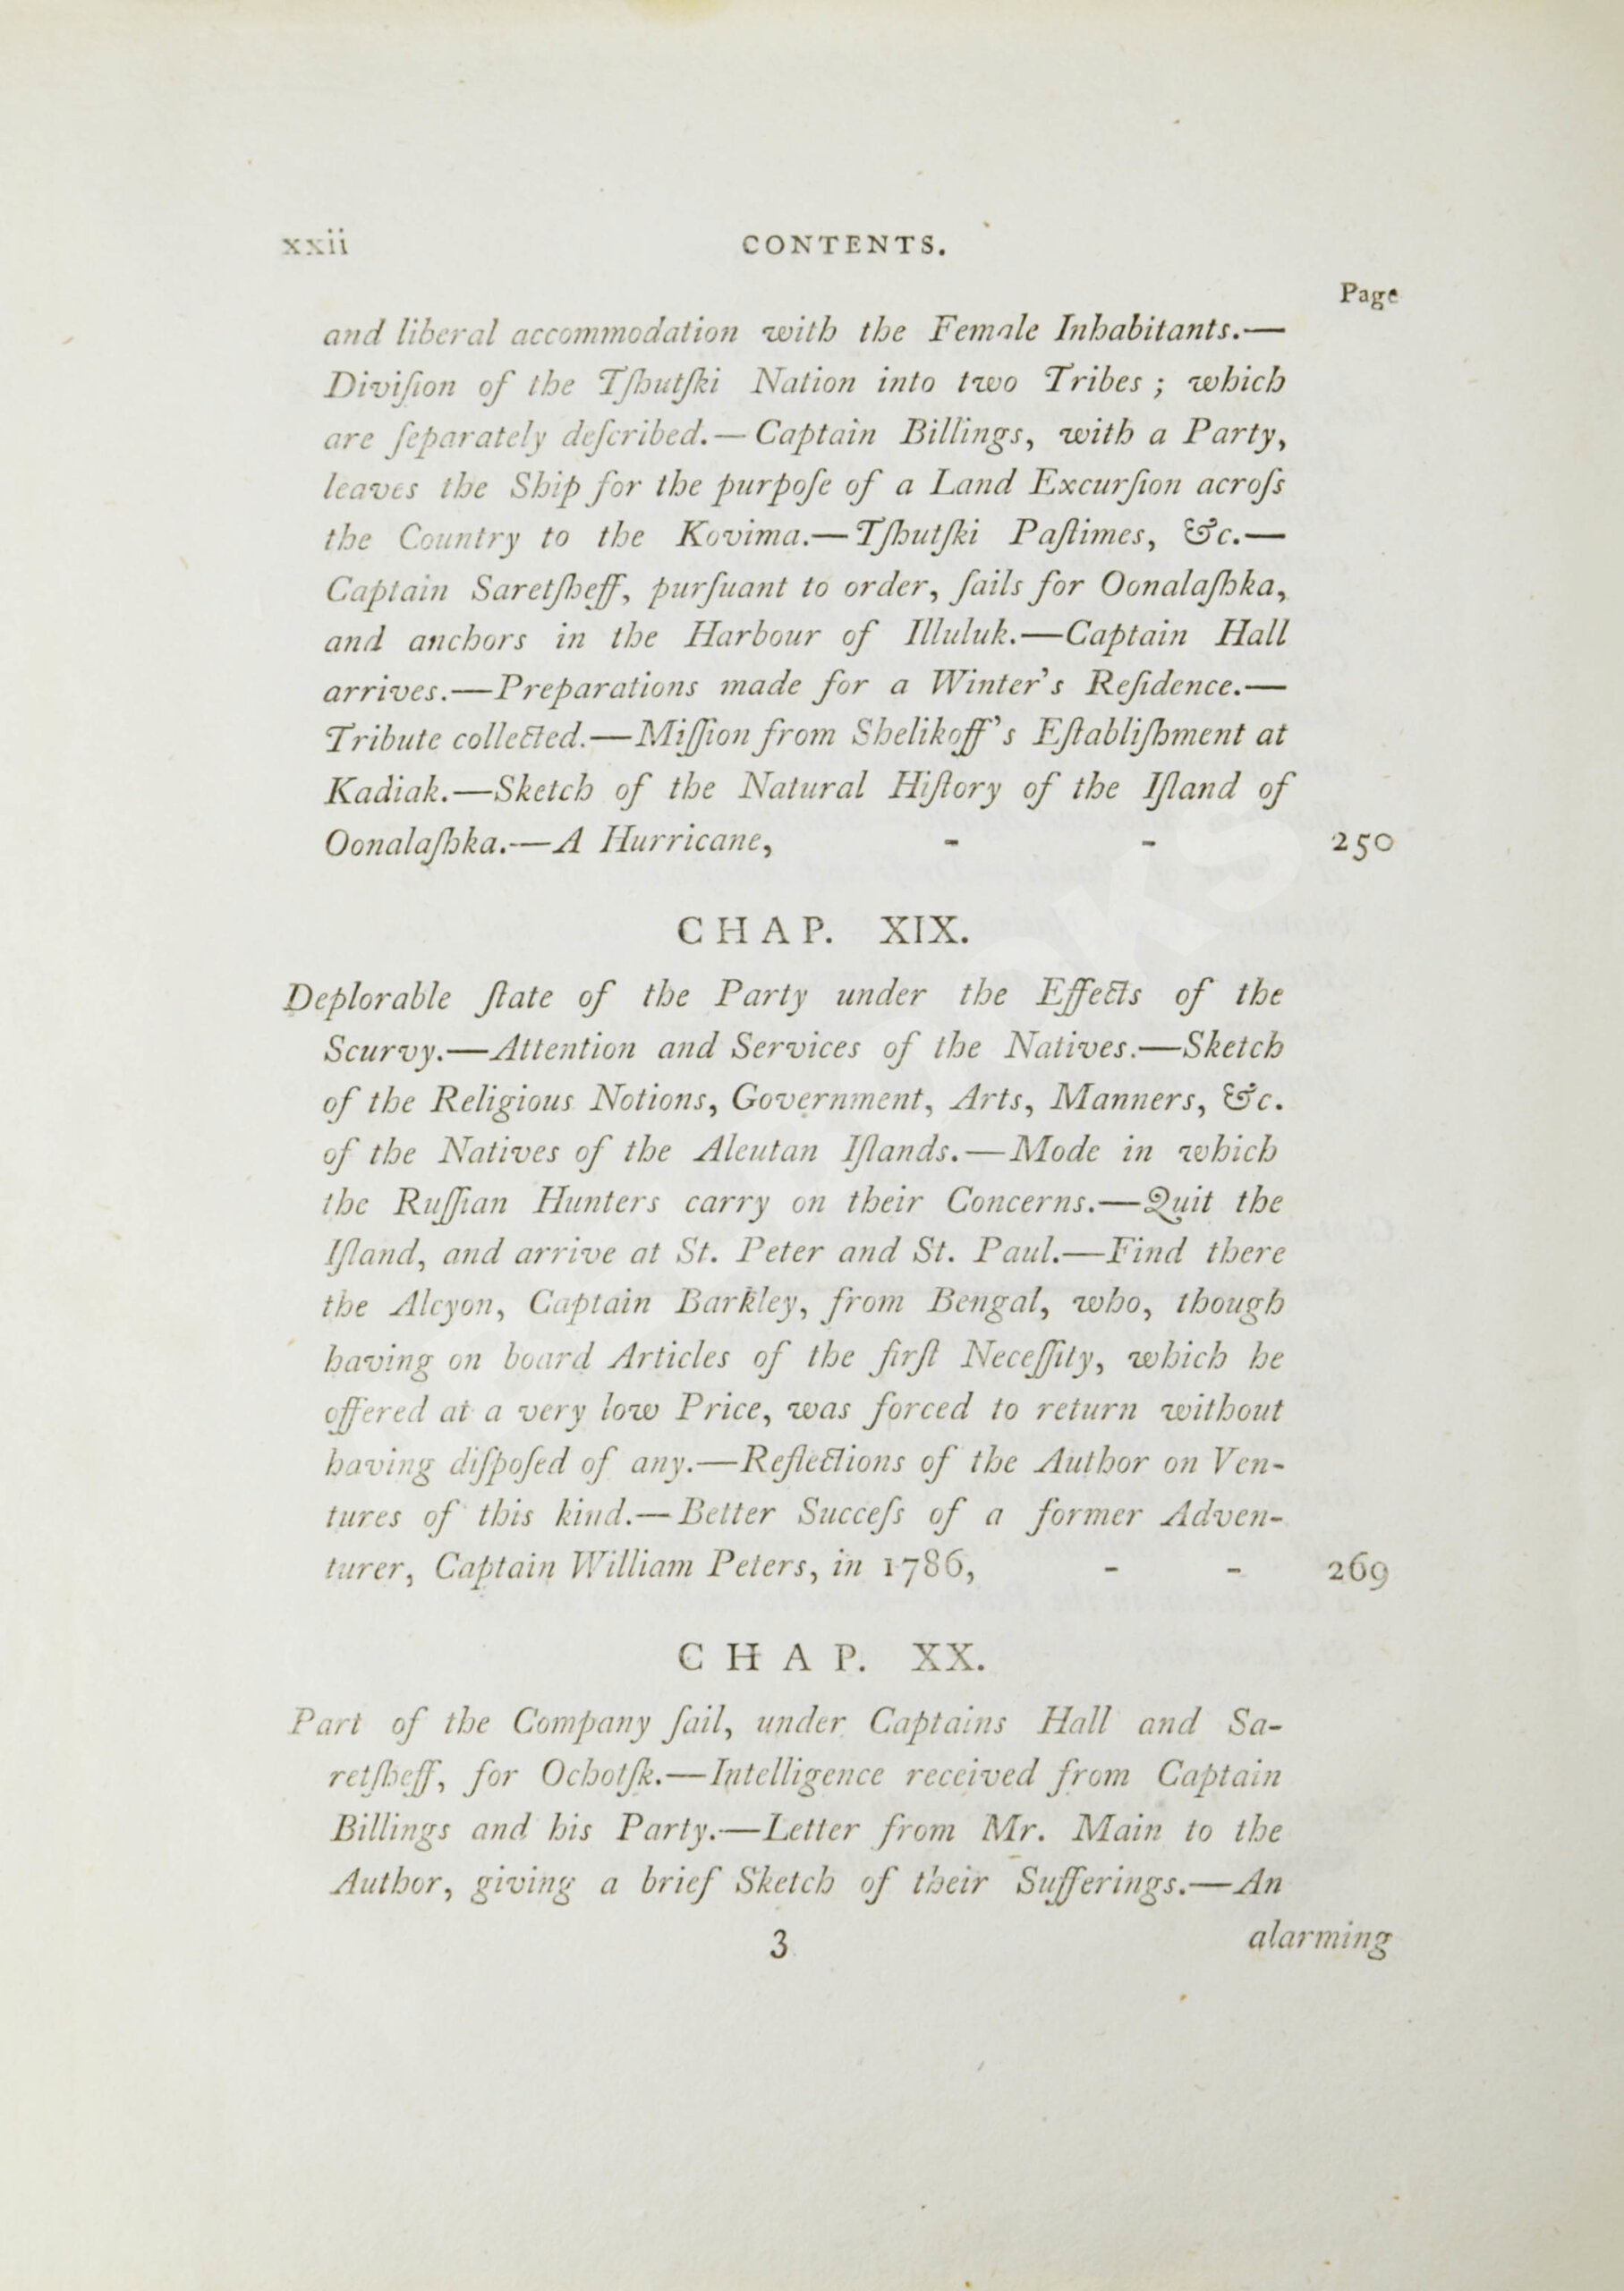 xxii CONTENTS.
Page
and liberal accommodation with the Female Inhabitants.—
Diviſion of the Tſhutſki Nation into two Tribes ; which
are ſeparately deſcribed.—Captain Billings, with a Party,
leaves the Ship for the purpoſe of a Land Excurſion acroſs
the Country to the Kovima.—Tſhutſki Paſtimes, &c.—
Captain Saretſheff, purſuant to order, ſails for Oonalaſhka,
and anchors in the Harbour of Illuluk.—Captain Hall
arrives.—Preparations made for a Winter's Reſidence.—
Tribute collected.—Miſſion from Shelikoff's Eſtabliſhment at
Kadiak.—Sketch of the Natural Hiſtory of the Iſland of
Oonalaſhka.—A Hurricane, - - 250
CHAP. XIX.
Deplorable ſtate of the Party under the Effects of the
Scurvy.—Attention and Services of the Natives.—Sketch
of the Religious Notions, Government, Arts, Manners, &c.
of the Natives of the Aleutan Iſlands.—Mode in which
the Ruſſian Hunters carry on their Concerns.—Quit the
Iſland, and arrive at St. Peter and St. Paul.—Find there
the Alcyon, Captain Barkley, from Bengal, who, though
having on board Articles of the firſt Neceſſity, which he
offered at a very low Price, was forced to return without
having diſpoſed of any.—Reflections of the Author on Ven-
tures of this kind.—Better Succeſs of a former Adven-
turer, Captain William Peters, in 1786, - - 269
CHAP. XX.
Part of the Company ſail, under Captains Hall and Sa-
retſheff, for Ochotſk.—Intelligence received from Captain
Billings and his Party.—Letter from Mr. Main to the
Author, giving a brief Sketch of their Sufferings.—An
3 alarming